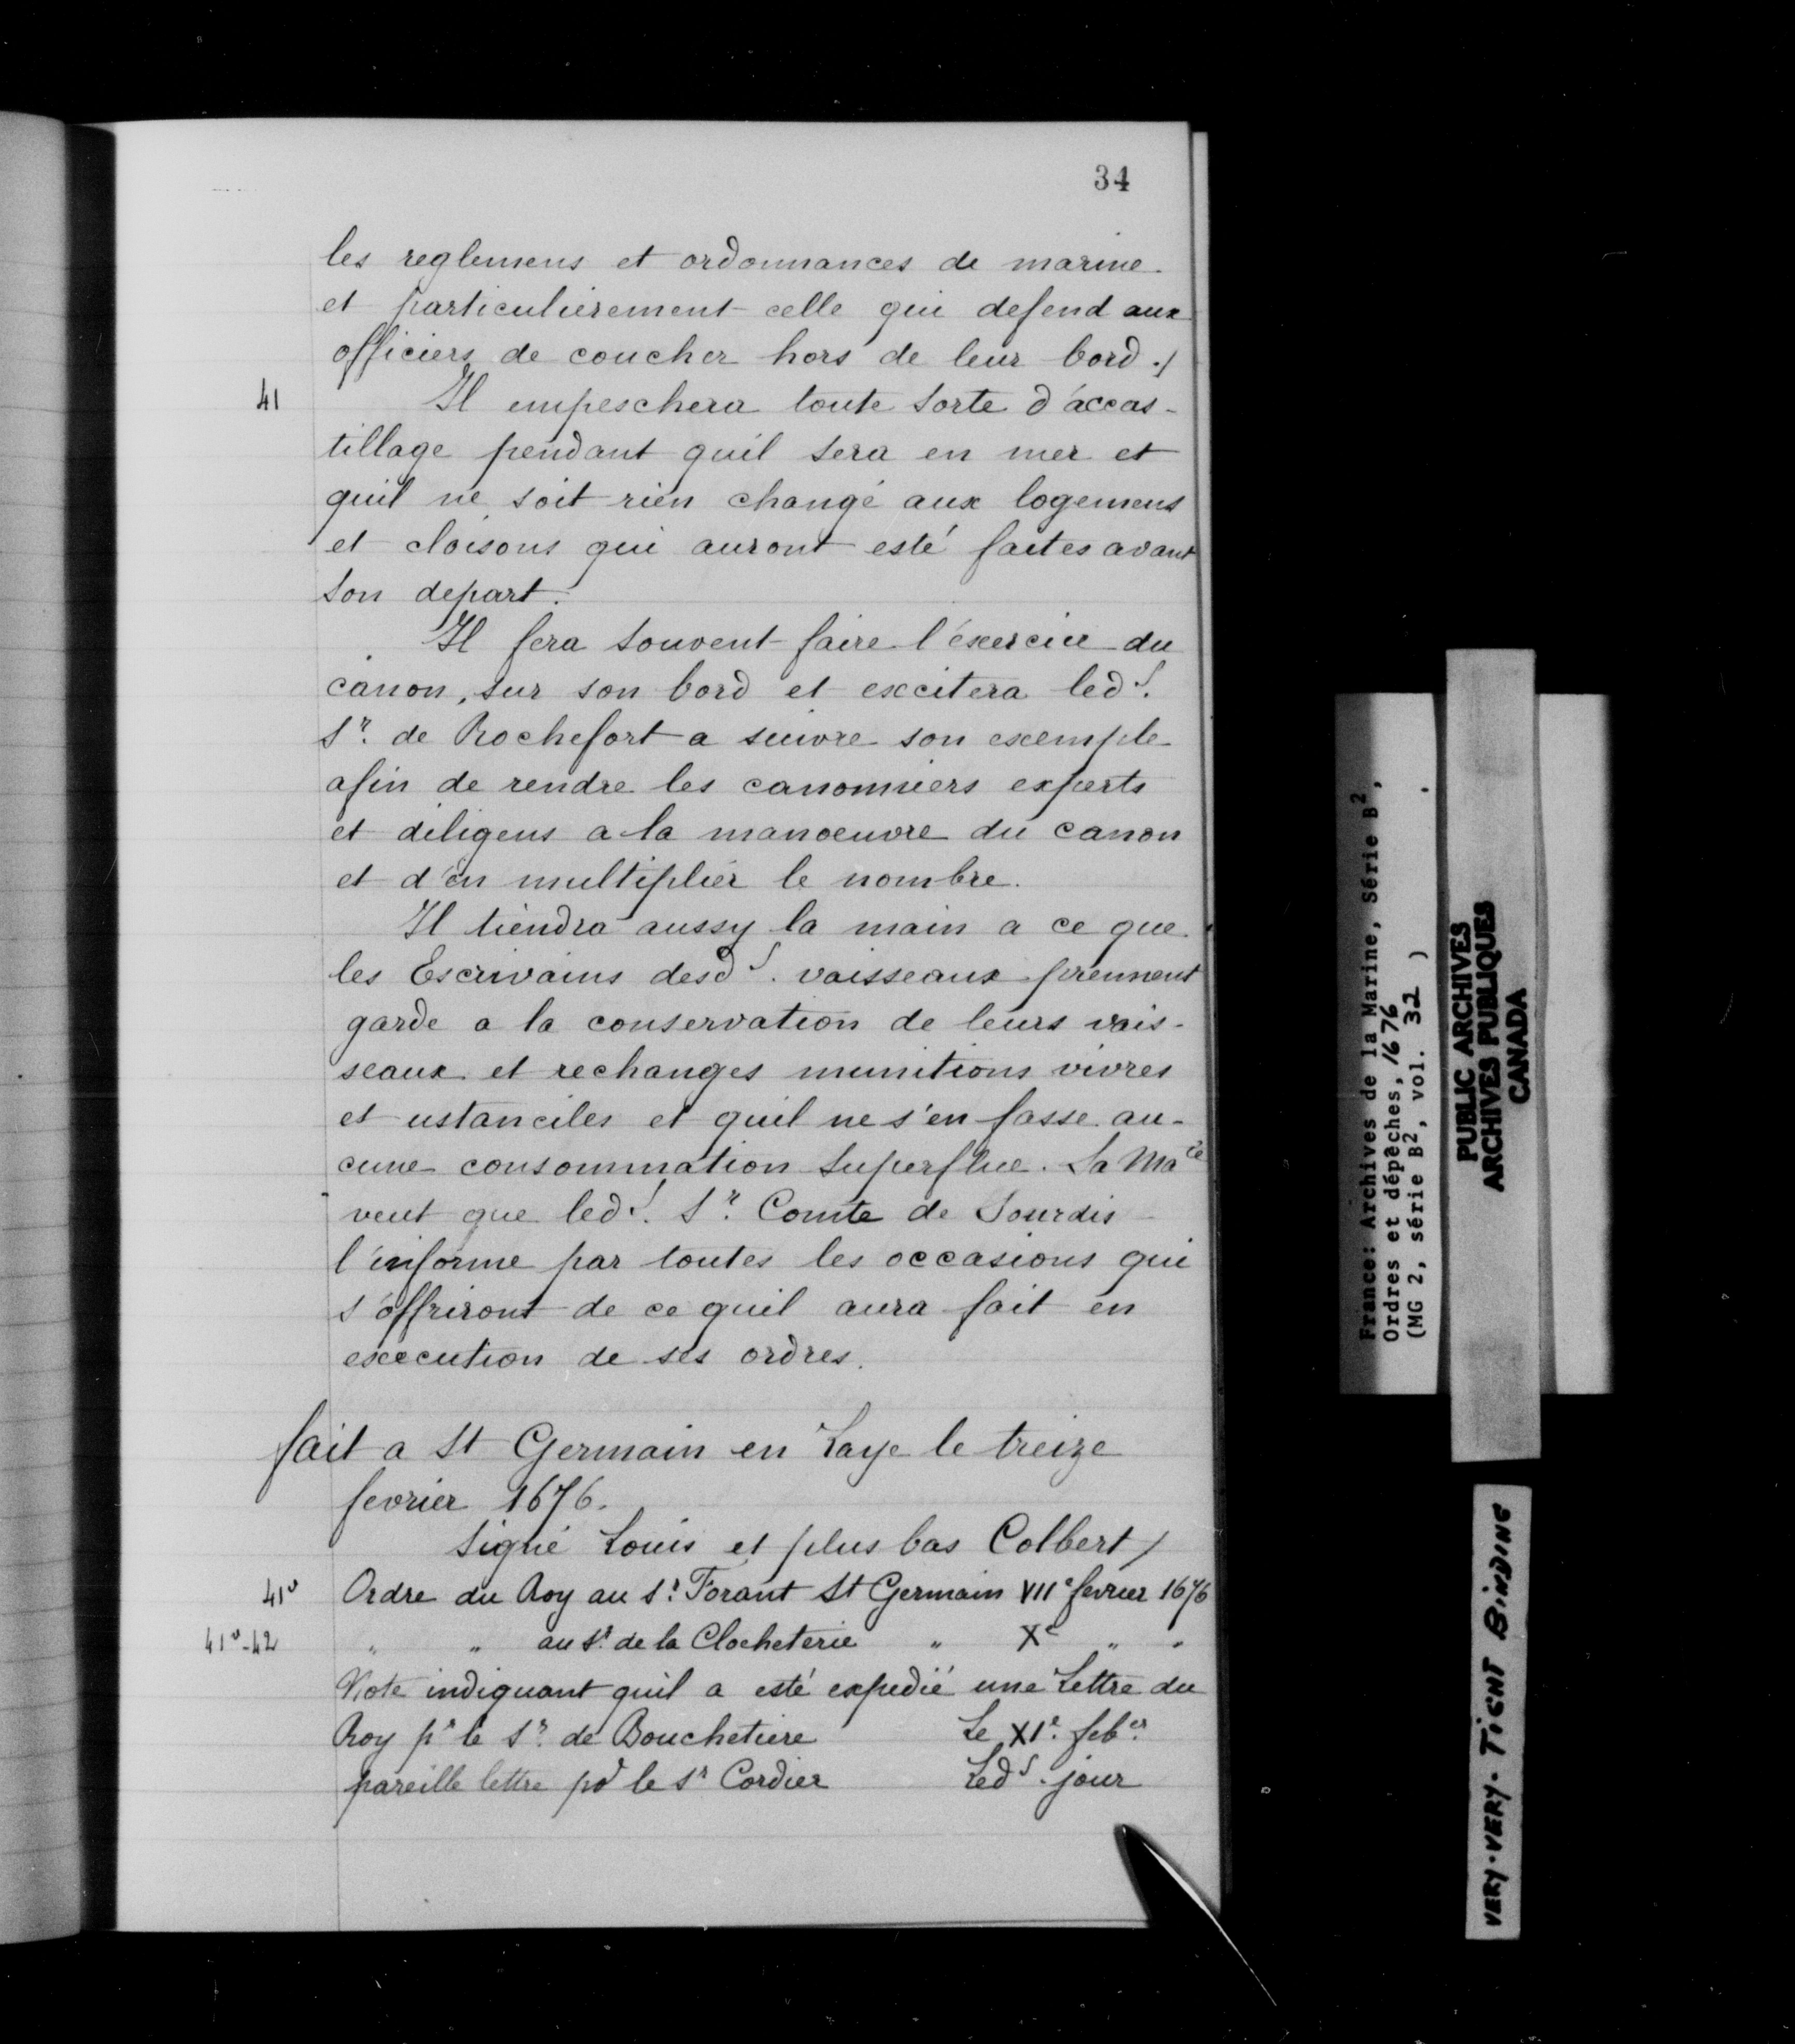 34
les reglemens et ordonnances de marine
et particulierement celle qui defend aux
officiers de coucher hors de leur bord ./
41 Il empeschera toute sorte d'accas-
tillage pendant quil sera en mer et
quil ne soit rien changé aux logemens
et cloisons qui auront esté faites avant
son depart.
Il fera souvent faire l'exercice du
canon, sur son bord et excitera led S.
Sr. de Rochefort a suivre son exemple
afin de rendre les canonniers experts
et diligens a la manoeuvre du canon
et d'en multiplier le nombre.
Il tiendra aussy la main a ce que
les Escrivains desd S. vaisseaux prennent
garde a la conservation de leurs vais-
seaux et rechanges munitions vivres
et ustanciles et quil ne s'en fasse au-
cune consommation superflue. Sa Mate
veut que led S. Sr. Comte de Sourdis
l'informe par toutes les occasions qui
s'offriront de ce quil aura fait en
execution de ses ordres.
fait a St Germain en Laye le treize
fevrier 1676.
signé Louis et plus bas Colbert /
41v Ordre du Roy au Sr. Forant St Germain VIIe fevrier 1676
41v-42 " " au Sr. de la Clocheterie " Xe " "
Note indiquant quil a esté expedié une Lettre du
Roy pr le Sr. de Bouchetiere Le XIe. feber
pareille lettre po' le Sr Cordier Led S. jour
France: Archives de la Marine, Série B2,
Ordres et dépêches, 1676 .
(MG 2, série B2, vol. 32 )
PUBLIC ARCHIVES
ARCHIVES PUBLIQUES
CANADA
VERY-VERY-TIGHT BINDING